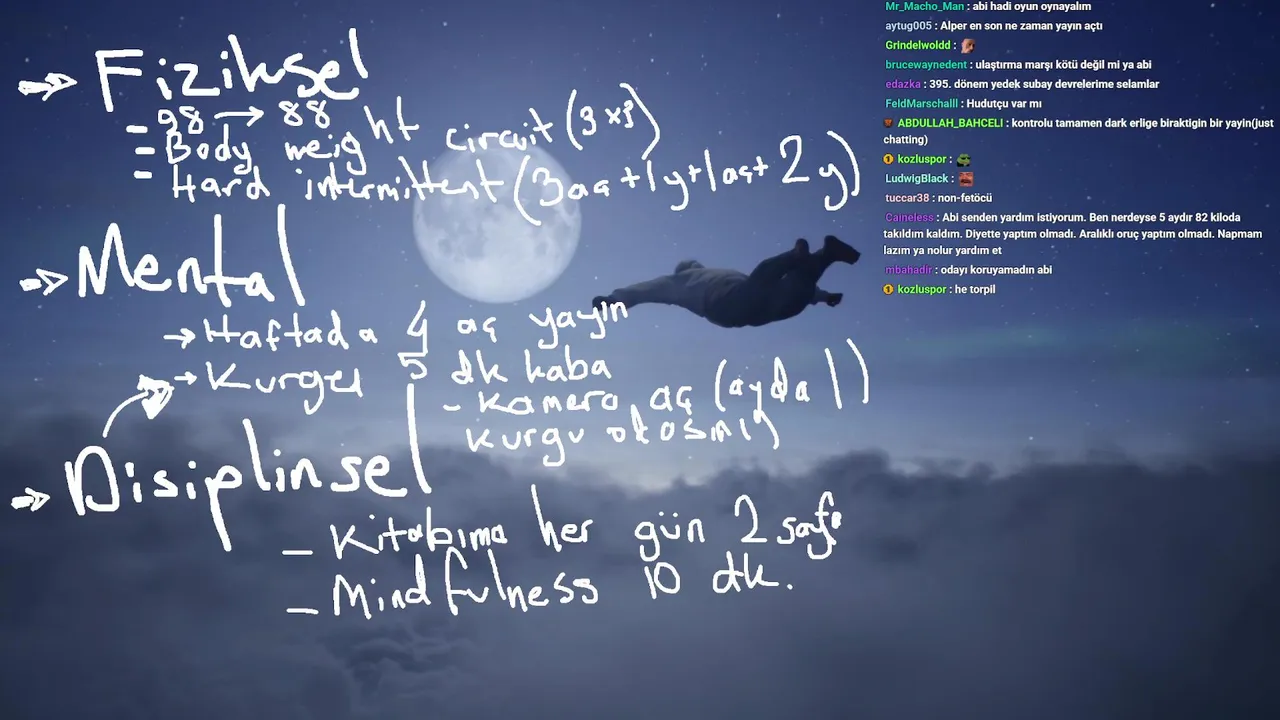 Fiziksel
- 98 → 88
- Body weight circuit (3x3)
- Hard intermittent (3aç+1y+1aç+2y)
Mental
→ Haftada 4 aç yayın
→ Kurgu 5 dk kaba
- Kamera aç (ayda 1)
kurgu otosmış
Disiplinsel
- Kitabıma her gün 2 sayfa
- Mindfulness 10 dk.
Mr_Macho_Man : abi hadi oyun oynayalım
aytug005 : Alper en son ne zaman yayın açtı
Grindelwoldd :
brucewaynedent : ulaştırma marşı kötü değil mi ya abi
edazka : 395. dönem yedek subay devrelerime selamlar
FeldMarschalll : Hudutçu var mı
ABDULLAH_BAHCELI : kontrolu tamamen dark erlige biraktigin bir yayin(just
chatting)
kozluspor :
LudwigBlack :
tuccar38 : non-fetöcü
Caineless : Abi senden yardım istiyorum. Ben nerdeyse 5 aydır 82 kiloda
takıldım kaldım. Diyette yaptım olmadı. Aralıklı oruç yaptım olmadı. Napmam
lazım ya nolur yardım et
mbahadir : odayı koruyamadın abi
kozluspor : he torpil